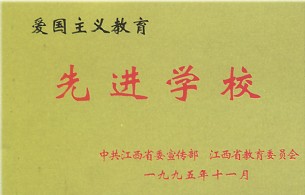 爱国主义教育
先进学校
中共江西省委宣传部 江西省教育委员会
一九九五年十一月